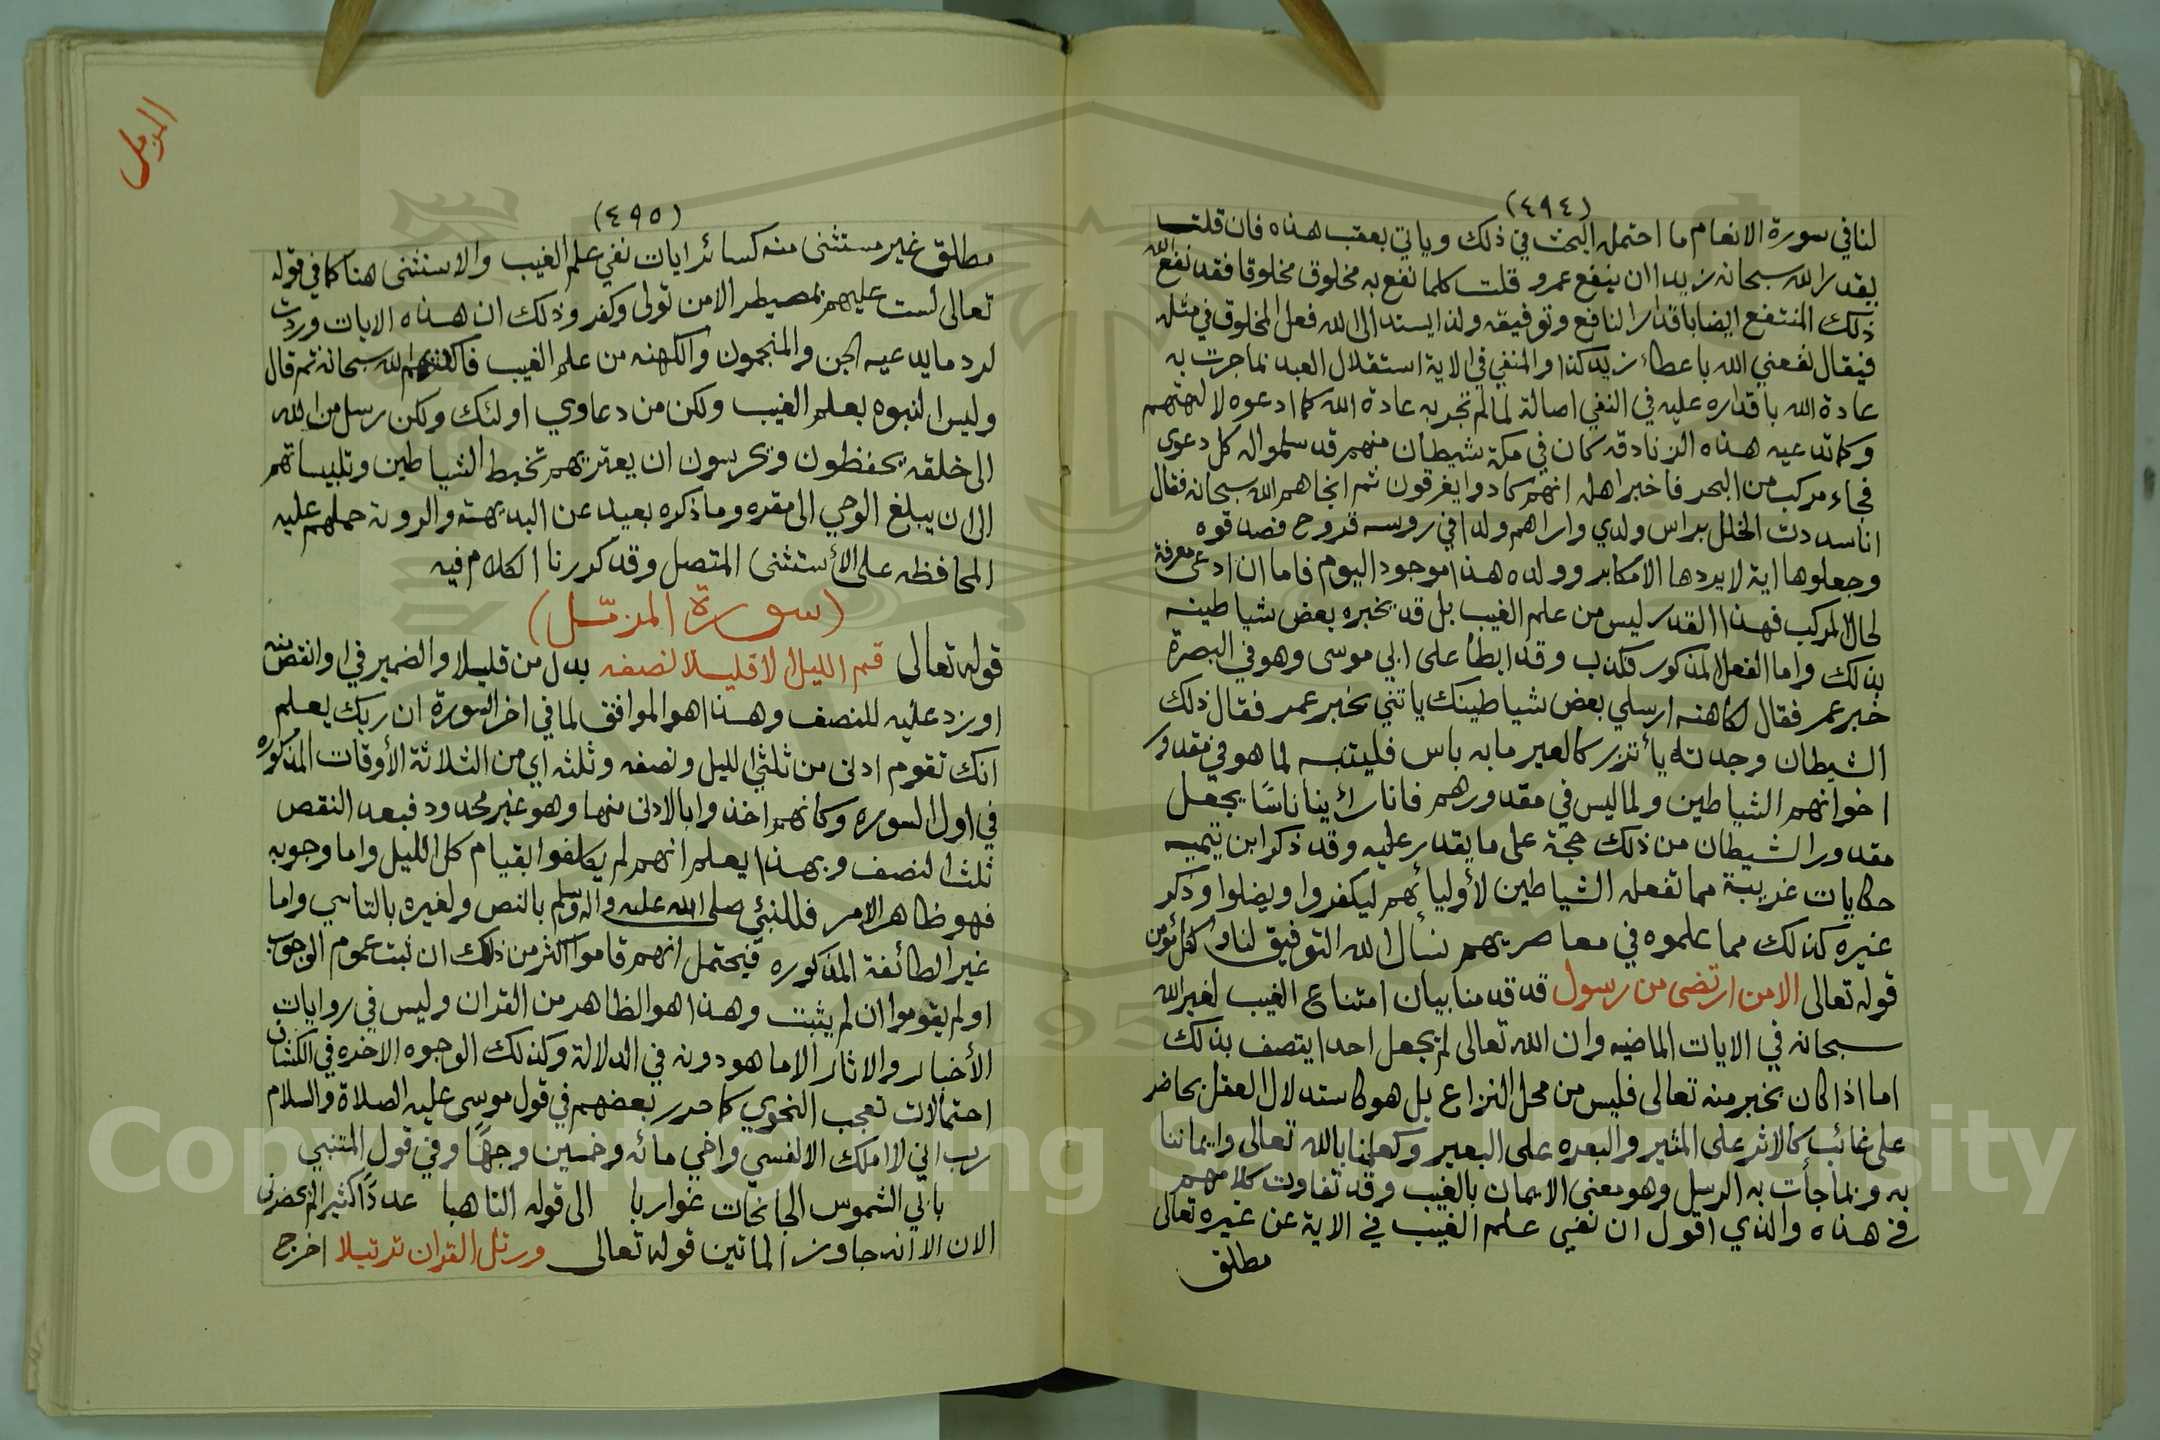 (٤٩٤)
لنا في سورة الانعام ما احتمل البحث في ذلك وياتي بعقب هذه فان قلت
يقدر الله سبحانه زيدا ان ينفع عمرو قلت كلما نفع به مخلوق مخلوقا فقد نفع الله
ذلك المنتفع ايضا باقدار النافع وتوفيقه ولذا يسند الى الله فعل المخلوق في مثله
فيقال نفعني الله باعطاء زيد كذا والمنفي في الاية استقلال العبد بما جرت به
عادة الله باقداره عليه في النفي اصالة لما لم تجر به عادة الله كما ادعوه لالهتهم
وكما تدعيه هذه الزنادقه كان في مكة شيطان منهم قد سلموا له كل دعوى
فجاء مركب من البحر فاخبر اهله انهم كادوا يغرقون ثم انجاهم الله سبحانه فقال
انا سددت الخلل براس ولدي واراهم ولدا في روسه قدوح فصدقوه
وجعلوها اية لا يردها الا مكابر وولده هذا موجود اليوم فاما ان ادعى معرفة
لحال المركب فهذا القدر ليس من علم الغيب بل قد يخبره بعض شياطينه
بذلك واما الفعل المذكور فكذب وقد ابطأ على ابي موسى وهو في البصرة
خبر عمر فقال لكاهنه ارسلي بعض شياطينك ياتني بخبر عمر فقال ذلك
الشيطان وجدته يأتزر كالعير ما به باس فليتبه لما هو في مقدور
اخوانهم الشياطين ولما ليس في مقدورهم فانا رأينا ناسًا يجعل
مقدور الشيطان من ذلك حجة على ما يقدر عليه وقد ذكر ابن تيميه
حكايات غريبة مما تفعله الشياطين لأوليائهم ليكفروا ويضلوا وذكر
غيره كذلك مما علموه في معاصريهم نسأل الله التوفيق لنا ولكل مؤمن
قوله تعالى الا من ارتضى من رسول قد قدمنا بيان امتناع الغيب لغير الله
سبحانه في الايات الماضيه وان الله تعالى لم يجعل احدا يتصف بذلك
اما اذا كان بخبر منه تعالى فليس من محل النزاع بل هو كاستدلال العقل بحاضر
على غائب كالاثر على المثير والبعره على البعير وكعلمنا بالله تعالى وايماننا
به وبما جأت به الرسل وهو معنى الايمان بالغيب وقد تفاوت كلامهم
في هذه والذي اقول ان نفي علم الغيب في الاية عن غيره تعالى
مطلق
المزمل
(٤٩٥)
مطلق غير مستثنى منه كسائر ايات نفي علم الغيب والاستثنى هنا كما في قوله
تعالى لست عليهم بمصيطر الا من تولى وكفر وذلك ان هذه الايات وردت
لرد ما يدعيه الجن والمنجمون والكهنه من علم الغيب فاكذبهم الله سبحانه ثم قال
وليس النبوه بعلم الغيب ولكن من دعاوي اولئك ولكن رسل من الله
الى خلقه يحفظون ويحرسون ان يعتريهم تخبط الشياطين وتلبيساتهم
الى ان يبلغ الوحي الى مقره وما ذكره بعيد عن البديهة والروية حملهم عليه
المحافظه على الأستثنى المتصل وقد كررنا الكلام فيه
(سورة المزمّل)
قوله تعالى قم الليل الا قليلا نصفه بدل من قليلا والضمير في او انقص منه
او زد عليه للنصف وهذا هو الموافق لما في اخر السورة ان ربك يعلم
انك تقوم ادنى من ثلثي الليل ونصفه وثلثه اي من الثلاثة الأوقات المذكوره
في اول السوره وكأنهم اخذوا بالادنى منها وهو غير محدود فبعد النقص
ثلث النصف وبهذا يعلم انهم لم يكلفوا بقيام كل الليل واما وجوبه
فهو ظاهر الامر فللنبي صلى الله عليه واله وسلم بالنص ولغيره بالتاسي واما
غير الطائفة المذكوره فيحتمل انهم قاموا اكثر من ذلك ان ثبت عموم الوجوب
او لم يقوموا ان لم يثبت وهذا هو الظاهر من القران وليس في روايات
الأخبار والاثار الا ما هو دونه في الدلالة وكذلك الوجوه الاخره في الكشاف
احتمالات تعجب النحوي كما حرر بعضهم في قول موسى عليه الصلاة والسلام
رب اني لا املك الا نفسي واخي مائه وخمسين وجهًا وفي قول المتنبي
بابي الشموس الجانحات غواربا الى قوله الناهبا عددًا كثيرا لم يحضرني
الان الا انه جاوز الماتين قوله تعالى ورتل القران ترتيلا اخرج
Copyright © King Saud University